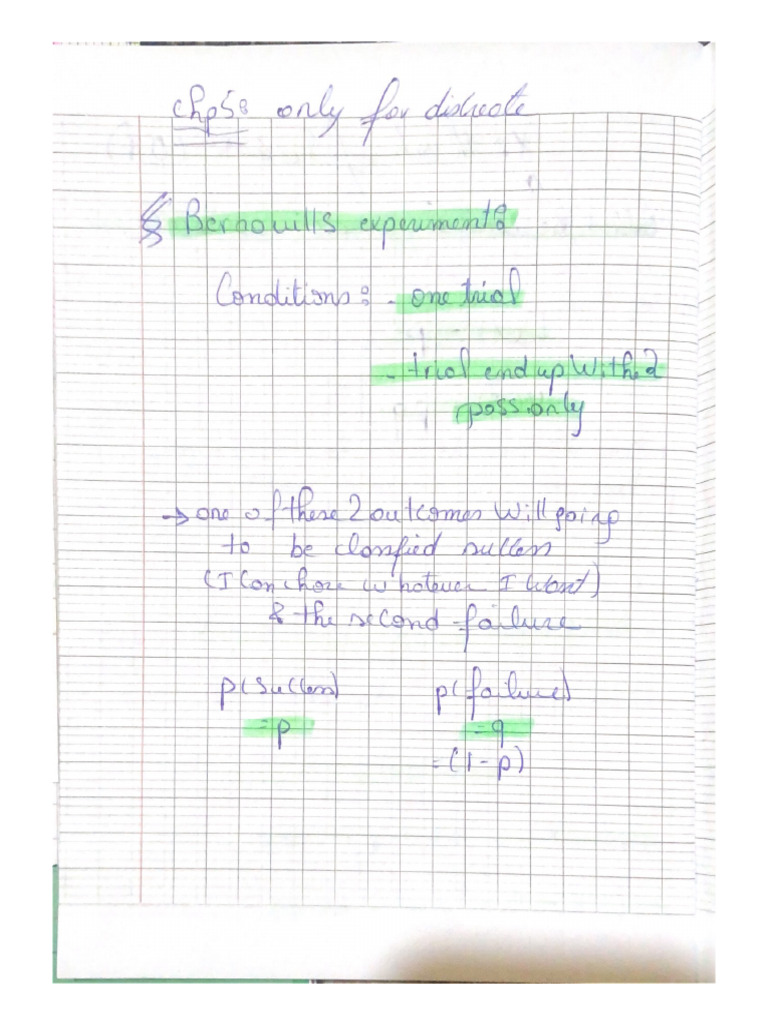 chp5: only for discreate
§ Bernouills experiment:
Conditions: - one trial
- trial end up with 2
poss. only
→ one of these 2 outcomes will going
to be classfied success
(I can chose whatever I want)
& the second failure
p(success) p(failure)
= p = q
= (1-p)